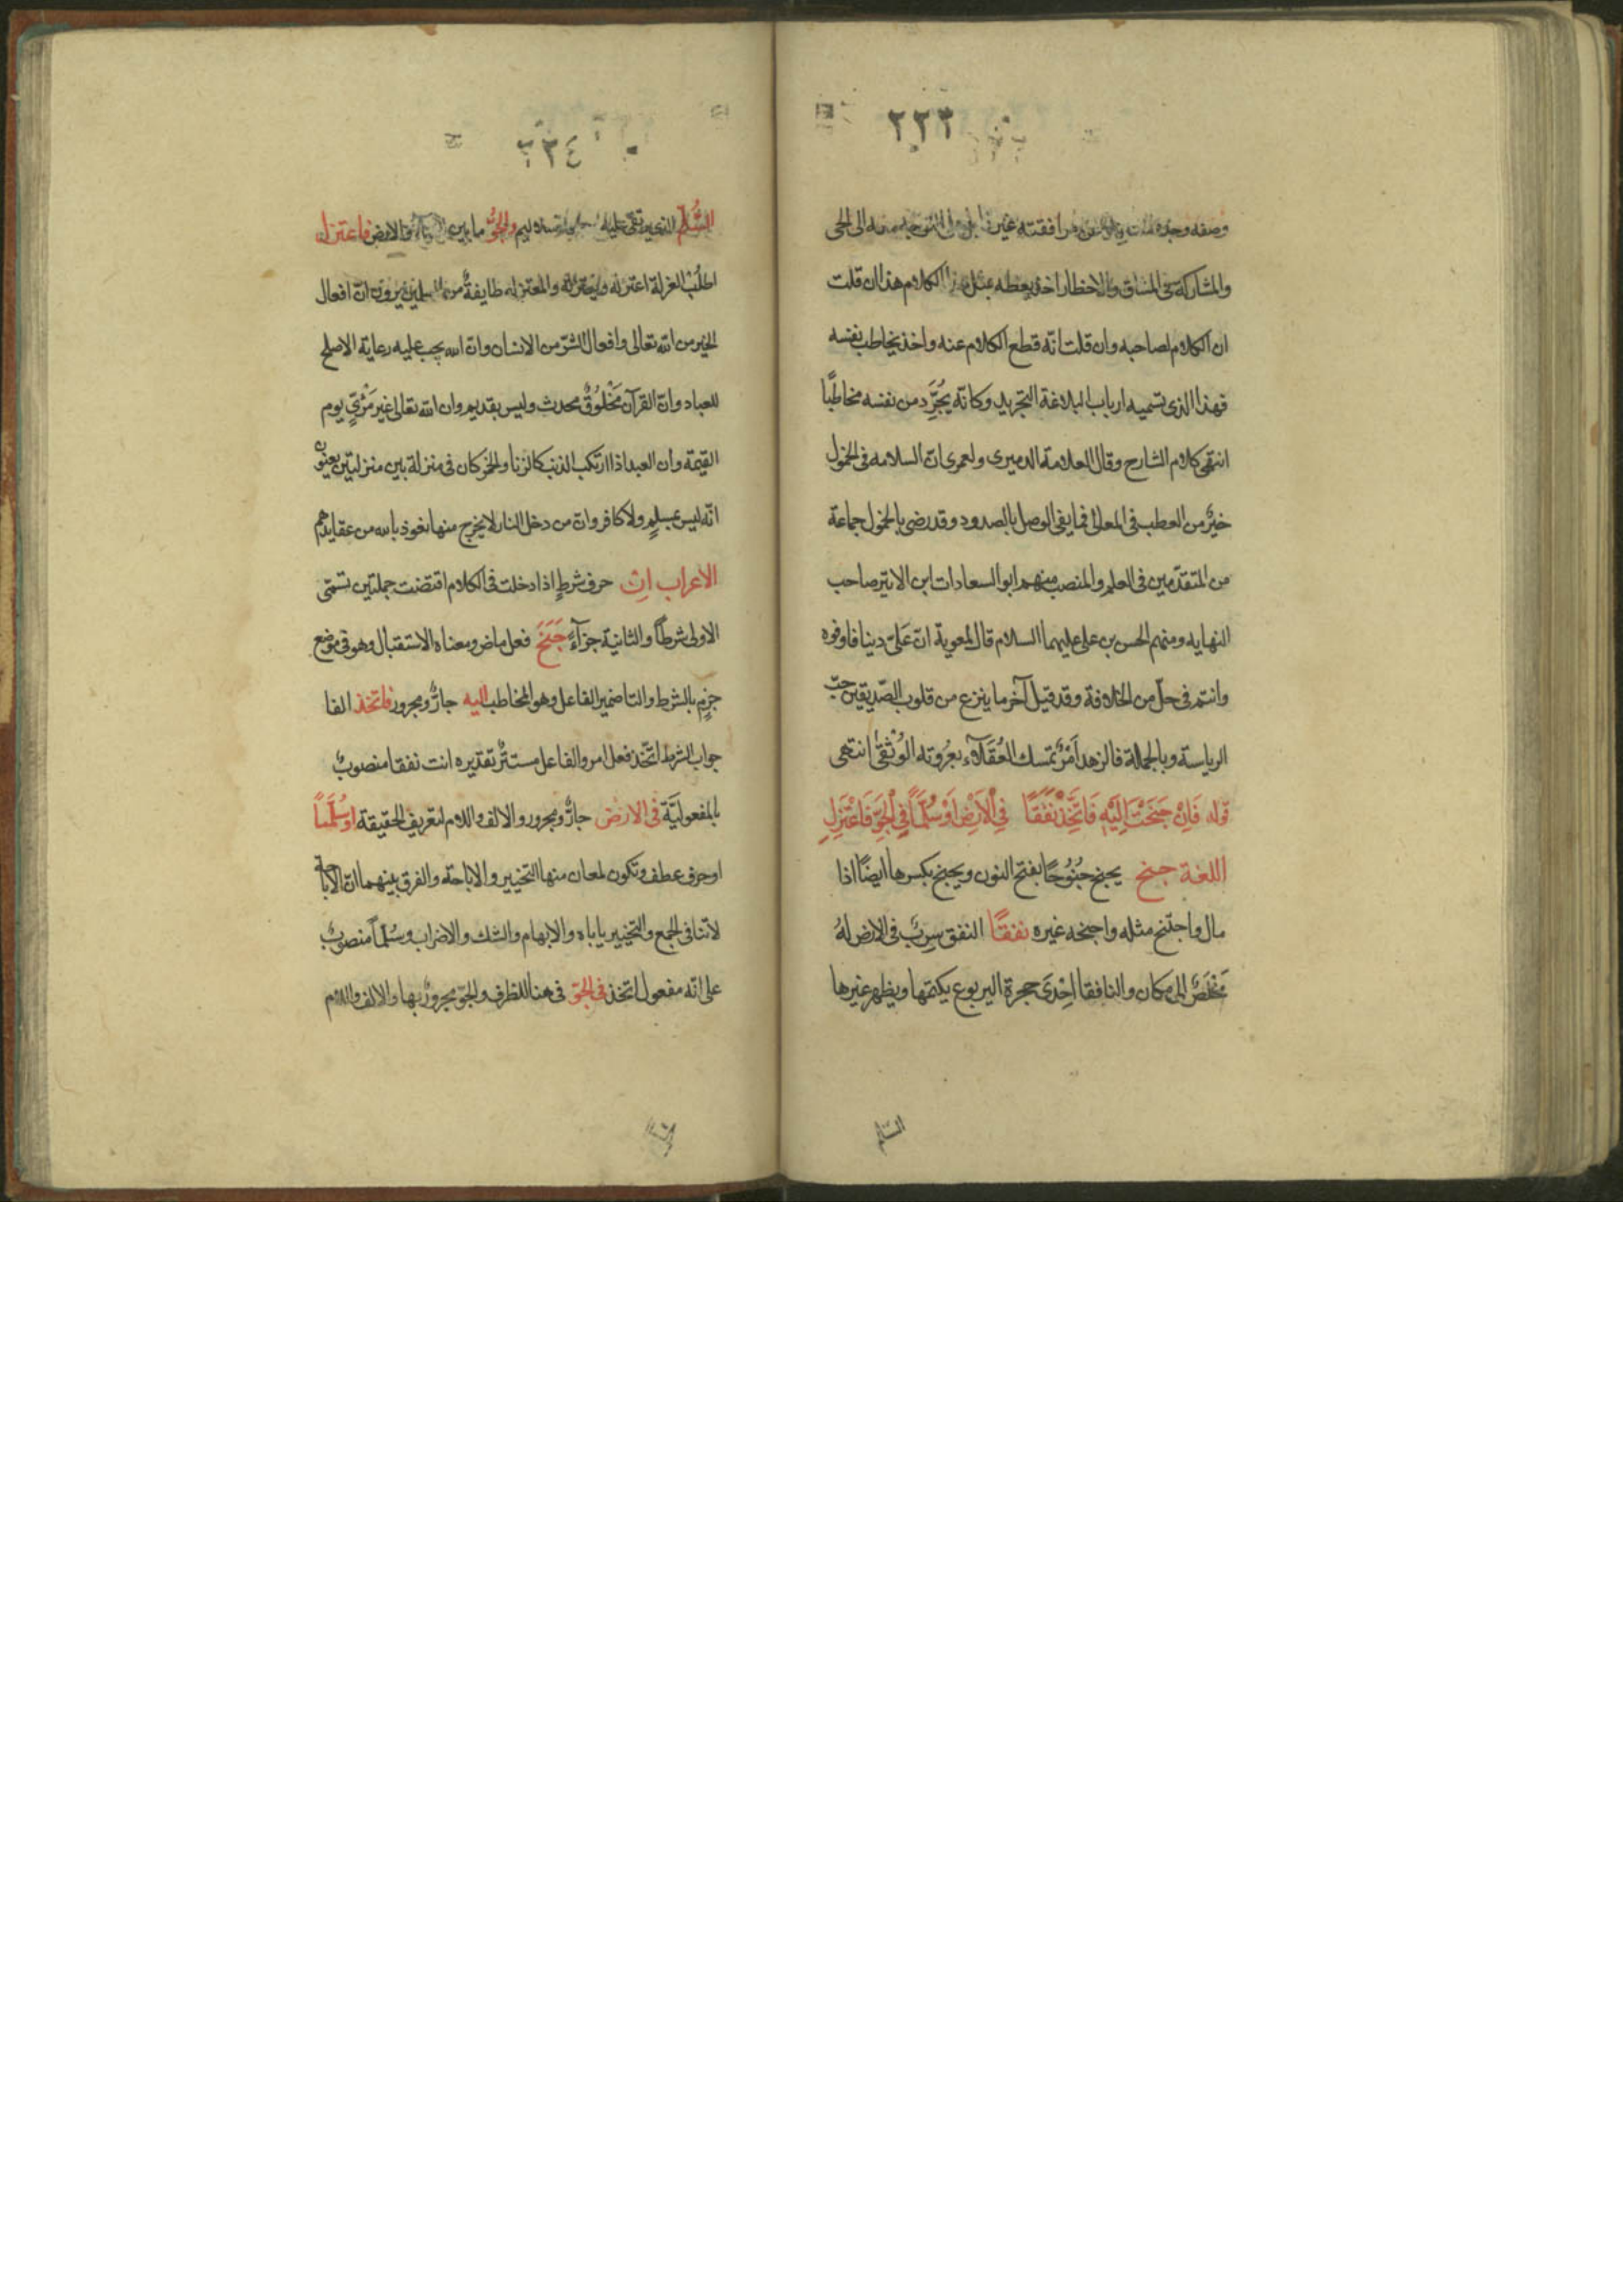 ٢٢٣
وصفه وجده من مرافقته غير الى الحى
والمشاركة فى المشاق والاخطار اخذ يعظه بمثل هذا الكلام هذا ان قلت
ان الكلام لصاحبه وان قلت انّه قطع الكلام عنه واخذ يخاطب نفسه
فهذا الذى تسميه ارباب البلاغة التجريد وكانّه يُجَرِّد من نفسه مخاطبًا
انتهى كلام الشارح وقال العلامة الدميرى ولعمرى انّ السلامه فى الخمول
خيرٌ من العطب فى المعالى فما يفى الوصل بالصدود وقد رضى بالخمول جماعة
من المتقدّمين فى العلم والمنصب منهم ابو السعادات ابن الاثير صاحب
النهايه ومنهم الحسن بن على عليهما السلام قال لمعوية انّ عَلىّ دينا فاوفوه
وانتم فى حلّ من الخلافة وقد قيل آخر ما ينزع من قلوب الصّديقين حبّ
الرياسة وبالجملة فالزهد اَمْرٌ تمسك العُقَلَاء بعُروته الوُثْقَىٰ انتهى
قوله فَاِنْ جَنَحْتَ اِلَيْهِ فَاتَّخِذْ نَفَقًا فِى الْاَرْضِ اَوْ سُلَّمًا فِى الْجَوِّ فَاعْتَزِلِ
اللغة جنح يجنح جُنُوحًا بفتح النون ويجنح بكسرها ايضًا اذا
مال واجتنح مثله واجنحه غيره نفقًا النفق سِربٌ فى الارض لهُ
مَخْلَصٌ الى مكان والنافقا اِحْدَى جحرة اليربوع يكتمها ويظهر غيرها
السّلم
٢٣٤
السُّلَّم الذى يرتقى عليه والجوّ ما بين السمآء والارض فاعتزل
اطلُب العزلة اعتزله وتعتزله والمعتزله طايفةٌ من المسلمين يرون انّ افعال
الخير من الله تعالى وافعال الشرّ من الانسان وانّ الله يجب عليه رعاية الاصلح
للعباد وانّ القرآن مَخْلُوقٌ محدث وليس بقديم وان الله تعالى غير مَرْئىّ يوم
القيمة وان العبد اذا ارتكب الذنب كالزنا والخمر كان فى منزلة بين منزلتين يعنون
انّه ليس بمسلمٍ ولا كافر وانّ من دخل النار لا يخرج منها نعوذ بالله من عقايدهم
الاعراب اِن حرف شرطٍ اذا دخلت فى الكلام اقتضت جملتين تسمّى
الاولى شرطًا والثانية جزآءً جَنَحَ فعل ماض ومعناه الاستقبال وهو فى موضع
جزمٍ بالشرط والتا ضمير الفاعل وهو المخاطب اليه جارّ ومجرور فاتخذ الفا
جواب الشرط اتّخذ فعل امر والفاعل مستترٌ تقديره انت نفقا منصوبٌ
بالمفعوليّة فى الارض جارّ ومجرور والالف واللام لتعريف الحقيقة او سُلَّمًا
او حرف عطف وتكون لمعان منها التخيير والاباحة والفرق بينهما انّ الاباحة
لا تنافى الجمع والتخيير ياباه والابهام والشك والاضراب وسُلّماً منصوبٌ
على انّه مفعول اتخذ فى الجوّ فى هنا للظرف والجوّ مجرورٌ بها والالف واللام